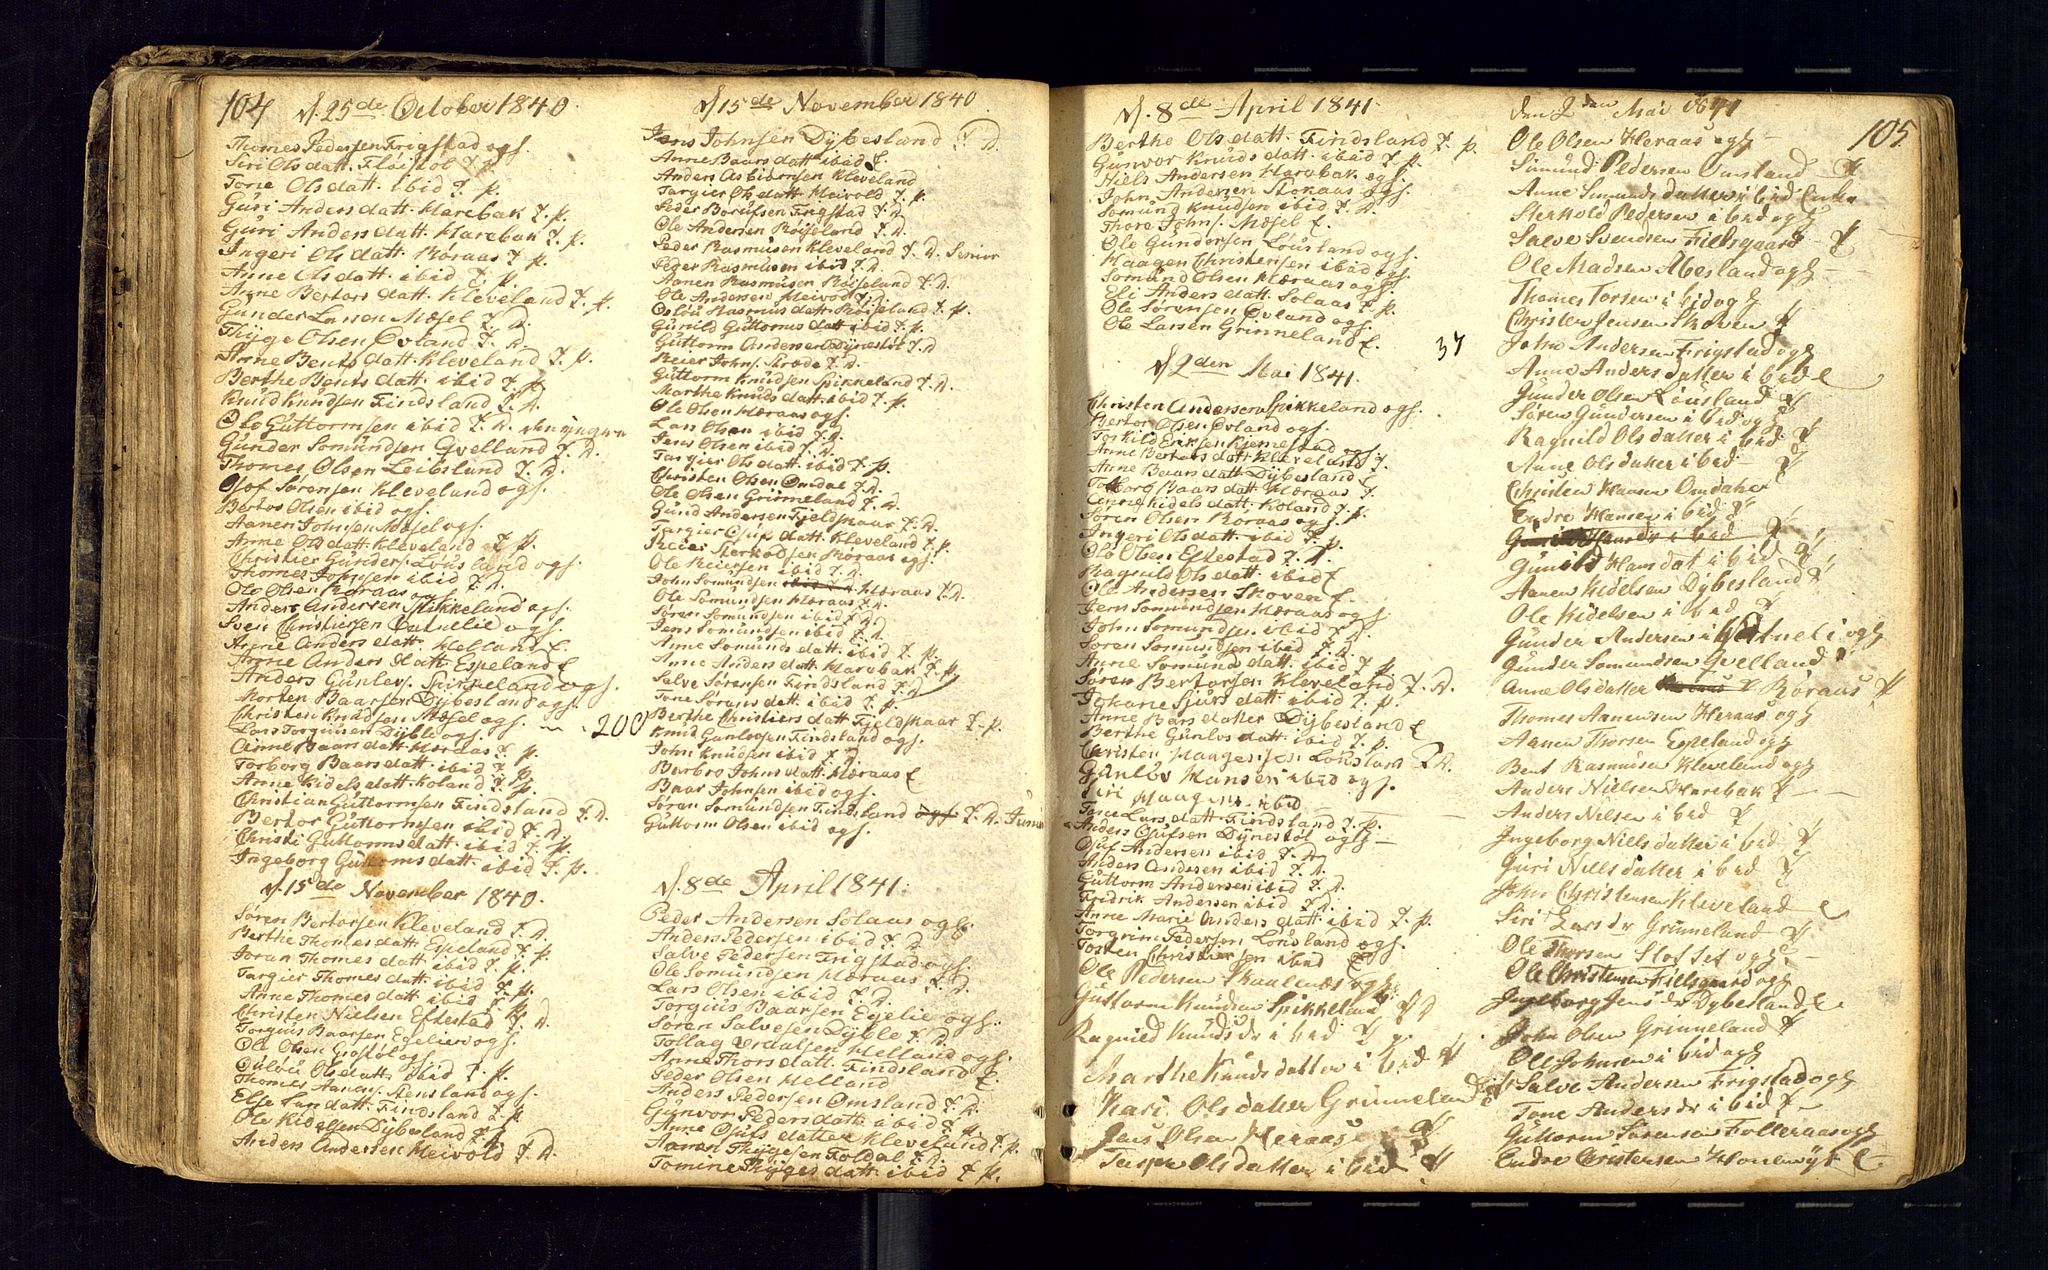 104 d. 25de October 1840.
Thomes Pedersen Frigstad ogs.
Siri Ols datt. Fløistøl F. p.
Tone Ols datt. ibid F. p.
Guri Anders datt. Harebak F. p.
Guri Anders datt. Harebak F. p.
Ingeri Ols datt. Røraas F. p.
Anne Ols datt. ibid F. p.
Anne Bertors datt. Kleveland F. p.
Gunder Larsen Møsel F. D.
Thyge Olsen Øvland F. D.
Anne Bents datt. Kleveland F. p.
Berthe Bents datt. ibid F. p.
Knud Knudsen Findsland F. D.
Ole Guttormsen ibid F. D. den yngre
Gunder Somundsen Qvelland F. D.
Thomes Olsen Leibsland F. D.
Oluf Sørensen Kleveland ogs.
Bertor Olsen ibid ogs.
Aanen Johnsen Møsel ogs.
Anne Ols datt. Kleveland F. p.
Christen Gunders. Lousland ogs.
Thomes Johnsen ibid F. D.
Ole Olsen Røraas ogs.
Anders Andersen Spikkeland ogs.
Sven Christensen ogs.
Anne Anders datt. Helland E
Anne Anders datt. Espeland E
Anders Gunlevs. Spikkeland ogs.
Morten Baarsen Dybesland ogs.
Christen Knudsen Møsel ogs.
Lars Torguusen Dyble ogs.
Anne Baars datt. Høraas F. p.
Torborg Baars datt. ibid F. p.
Anne Kidels datt. Holand F. p.
Christian Guttormsen Findsland F. D.
Bertor Guttormsen ibid F. D.
Christi Guttorms datt. ibid F. p.
Ingeborg Guttorms datt. ibid F. p.
d. 15de November 1840.
Søren Bertorsen Kleveland F. D.
Berthe Thomes datt. Espeland F. p.
Joran Thomes datt. ibid F. p.
Targier Thomes datt. ibid F. p.
Anne Thomes datt. ibid F. p.
Christen Nielsen Eftestad F. D.
Torguus Baarsen Egelie ogs.
Ole Olsen ogs.
Ols datt. ibid F. p.
Thomes Aanens. Stensland ogs.
Elle Lars datt. Findsland F. p.
Ole Kidelsen Dybesland F. D.
Anders Andersen Heivold F. D.
d. 15de November 1840
Jens Johnsen Dybesland F. D.
Anne Baars datt. ibid E
Anders Asbiørnsen Kleveland
Targier Ols datt. Heivold F. p.
Peder Borufsen Frigstad F. D.
Ole Andersen Røiseland F. D.
Peder Rasmusen Kleveland F. D. Senior
Peder Rasmusen ibid F. D.
Aanen Rasmusen Røiseland F. D.
Ole Andersen Heivold F. D.
Oslou Rasmus datt. Røiseland F. p.
Gunild Guttorms datt. ibid F. p.
Guttorm Andersen Dynestøl F. D.
Reier Johns. Skrede F. D.
Guttorm Knudsen Spikkeland F. D.
Marthe Knuds datt. ibid F. p.
Ole Olsen Høraas ogs.
Lars Olsen ibid F. D.
Jens Olsen ibid F. D.
Targier Ols datt. ibid F. p.
Christen Olsen Omdal F. D.
Ole Olsen Grinneland F. D.
Gund Andersen Fjeldskaar F. D.
Targier Oluf datt. Kleveland F. p.
Reier Sterkodsen Røraas ogs.
Ole Reiersen ibid F. D.
John Somundsen Høraas F. D.
Ole Somundsen Høraas F. D.
Søren Somundsen ibid F. D.
Jens Somundsen ibid F. D.
Anne Somunds datt. ibid F. p.
Anne Anders datt. Harebak F. p.
Salve Sørensen Findsland F. D.
Tone Sørens datt. ibid F. p.
- 200 Berthe Christiens datt. Fjeldskaar F. p.
Knud Gunlevsen Findsland ogs.
John Knudsen ibid F. D.
Barbro Johns datt. Høraas E
Baar Johnsen ibid ogs.
Søren Somundsen Findsland ogs F. D. Junior
Guttorm Olsen ibid ogs.
d. 8de April 1841.
Peder Andersen Solaas ogs.
Anders Pedersen ibid F. D.
Salve Pedersen Frigstad ogs.
Ole Somundsen Høraas F. D.
Lars Olsen ibid F. D.
Torguus Baarsen Egelie ogs.
Søren Salvesen Dyble F. D.
Tollag Vraalsen Helland ogs.
Anne Thors datt. Findsland E
Peder Olsen Helland
Anders Pedersen Omsland F. D.
Gunvor Peders datt. ibid F. p.
Anne Olufs datter Kleveland F. p.
Aanen Thygesen Foldal F. D.
Tomine Thyges datt. ibid F. p.
d. 8de April 1841.
Berthe Ols datt. Findsland F. p.
Gunvor Knuds datt. ibid F. p.
Niels Andersen Harebak ogs.
John Andersen Stokaas ogs.
Somund Knudsen ibid F. D.
Thore Johns. Møsel E.
Ole Gundersen Lousland ogs.
Haagen Christensen ibid ogs.
Somund Olsen Høraas ogs.
Eli Anders datt. Solaas F. p.
Ole Sørensen Øvland ogs.
Ole Larsen Grinneland E.
37
d 2den Mai 1841.
Christen Andersen Spikkeland ogs.
Bertor Olsen Øvland ogs.
Torkild Eriksen Kjernestad ogs.
Anne Bertors datt. Kleveland F.
Anne Baars datt. Dybesland E
Torborg Baars datt. Høraas F.
Anne Kidels datt. Holand F. p.
Søren Olsen Røraas ogs.
Ingeri Ols datt. ibid F. p.
Ole Olsen Eftestad F. D.
Ragnild Ols datt. ibid E
Ole Andersen Skoven E
Jens Somundsen Høraas ogs.
John Somundsen ibid F. D.
Søren Somundsen ibid F. D.
Anne Somunds datt. ibid F. p.
Søren Bertorsen Kleveland F. D.
Johane Siurs datt. ibid F. p.
Anne Bars datter Dybesland E
Berthe Gunlevs datt. ibid F. p.
Christen Haagensen Lousland F. D.
Gunlov Hansen ibid ogs.
Siri Haagens ibid
Tone Lars datt. Findsland F. p.
Anders Olufsen Dynestøl ogs -
Oluf Andersen ibid F. D.
Anders Andersen ibid F. D.
Guttorm Andersen ibid F. D.
Fridrik Andersen ibid F. D.
Anne Marie Anders datt. ibid F. p.
Torgrim Pedersen Lousland ogs.
Tosten Christensen ibid E
Ole Pedersen Skaalenes ogs
Guttorm Knudsen Spikkeland F D
Ragnild Knudsdr ibid F p.
Marthe Knuds datter ibid F
Kari Olsdatter Grinneland F
Jens Olsen Heraas F
Olsdatter ibid F
den 2den Mai 1841
105.
Ole Olsen Heraas ogs -
Simund Pedersen Omsland F
Anne Simunds datter ibid Enke
Sterkold Pedersen ibid ogs
Salve Svendsen Fielsgaard - F
Ole Madsen Abesland ogs -
Thomes Torsen ibid ogs
Christen Jensen Skoven F
John Andersen Frigstad ogs
Anne Anders datter ibid E
Gunder Olsen Lousland F
Søren Gundersen ibid ogs
Ragnild Olsdatter ibid F
Anne Olsdatter ibid - F
Christen Hansen Omdal
Endre Hansen ibid F
Hansdr ibid F
Gunild Hans dat ibid F
Aanen Kidelsen Dybesland F
Ole Kidelsen ibid F
Gunder Andersen ogs
Gunder Somundsen Qvelland F
Anne Olsdatter Røraas F
Thomes Aanensen Heraas ogs
Aanen Thorsen Espeland ogs
Bent Rasmusen Kleveland ogs
Anders Nielsen Harebak F -
Anders Nilsen ibid F
Ingeborg Niels datter ibid F
Guri Niels datter ibid F
John Christensen Kleveland - E
Siri Larsdr Grinneland F
Ole Thorsen ogs -
Ole Christensen Fielsgaard ogs
Ingeborg Jensdr Dybesland E
John Olsen Grinneland F
Ole Johnsen ibid ogs
Salve Andersen Frigstad ogs
Tone Andersdr ibid F -
Guttorm Sørensen Folleraas ogs
Endre Cristensen E